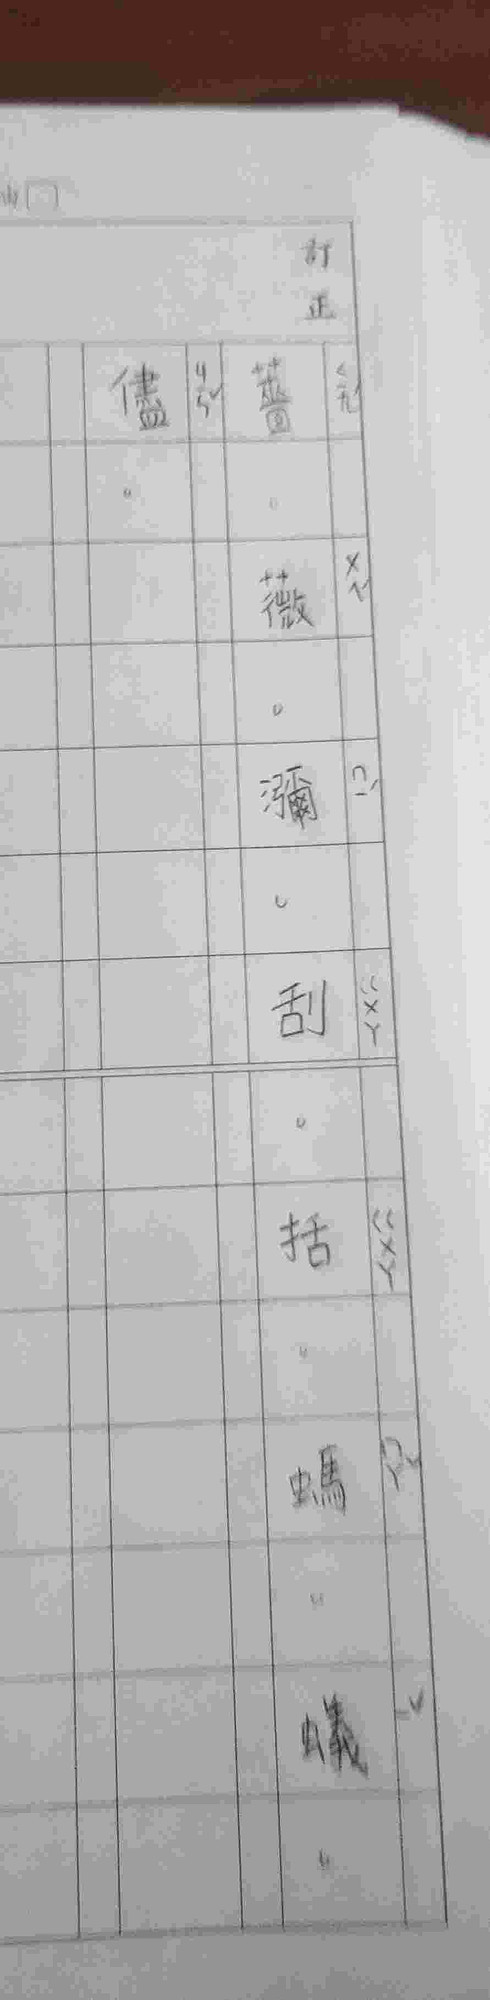 訂正
薔。薇。瀰。刮。括。螞。蟻。
ㄑㄧㄤˊ ㄨㄟˊ ㄇㄧˊ ㄍㄨㄚ ㄍㄨㄚ ㄇㄚˇ ㄧˇ
儘。
ㄐㄧㄣˇ